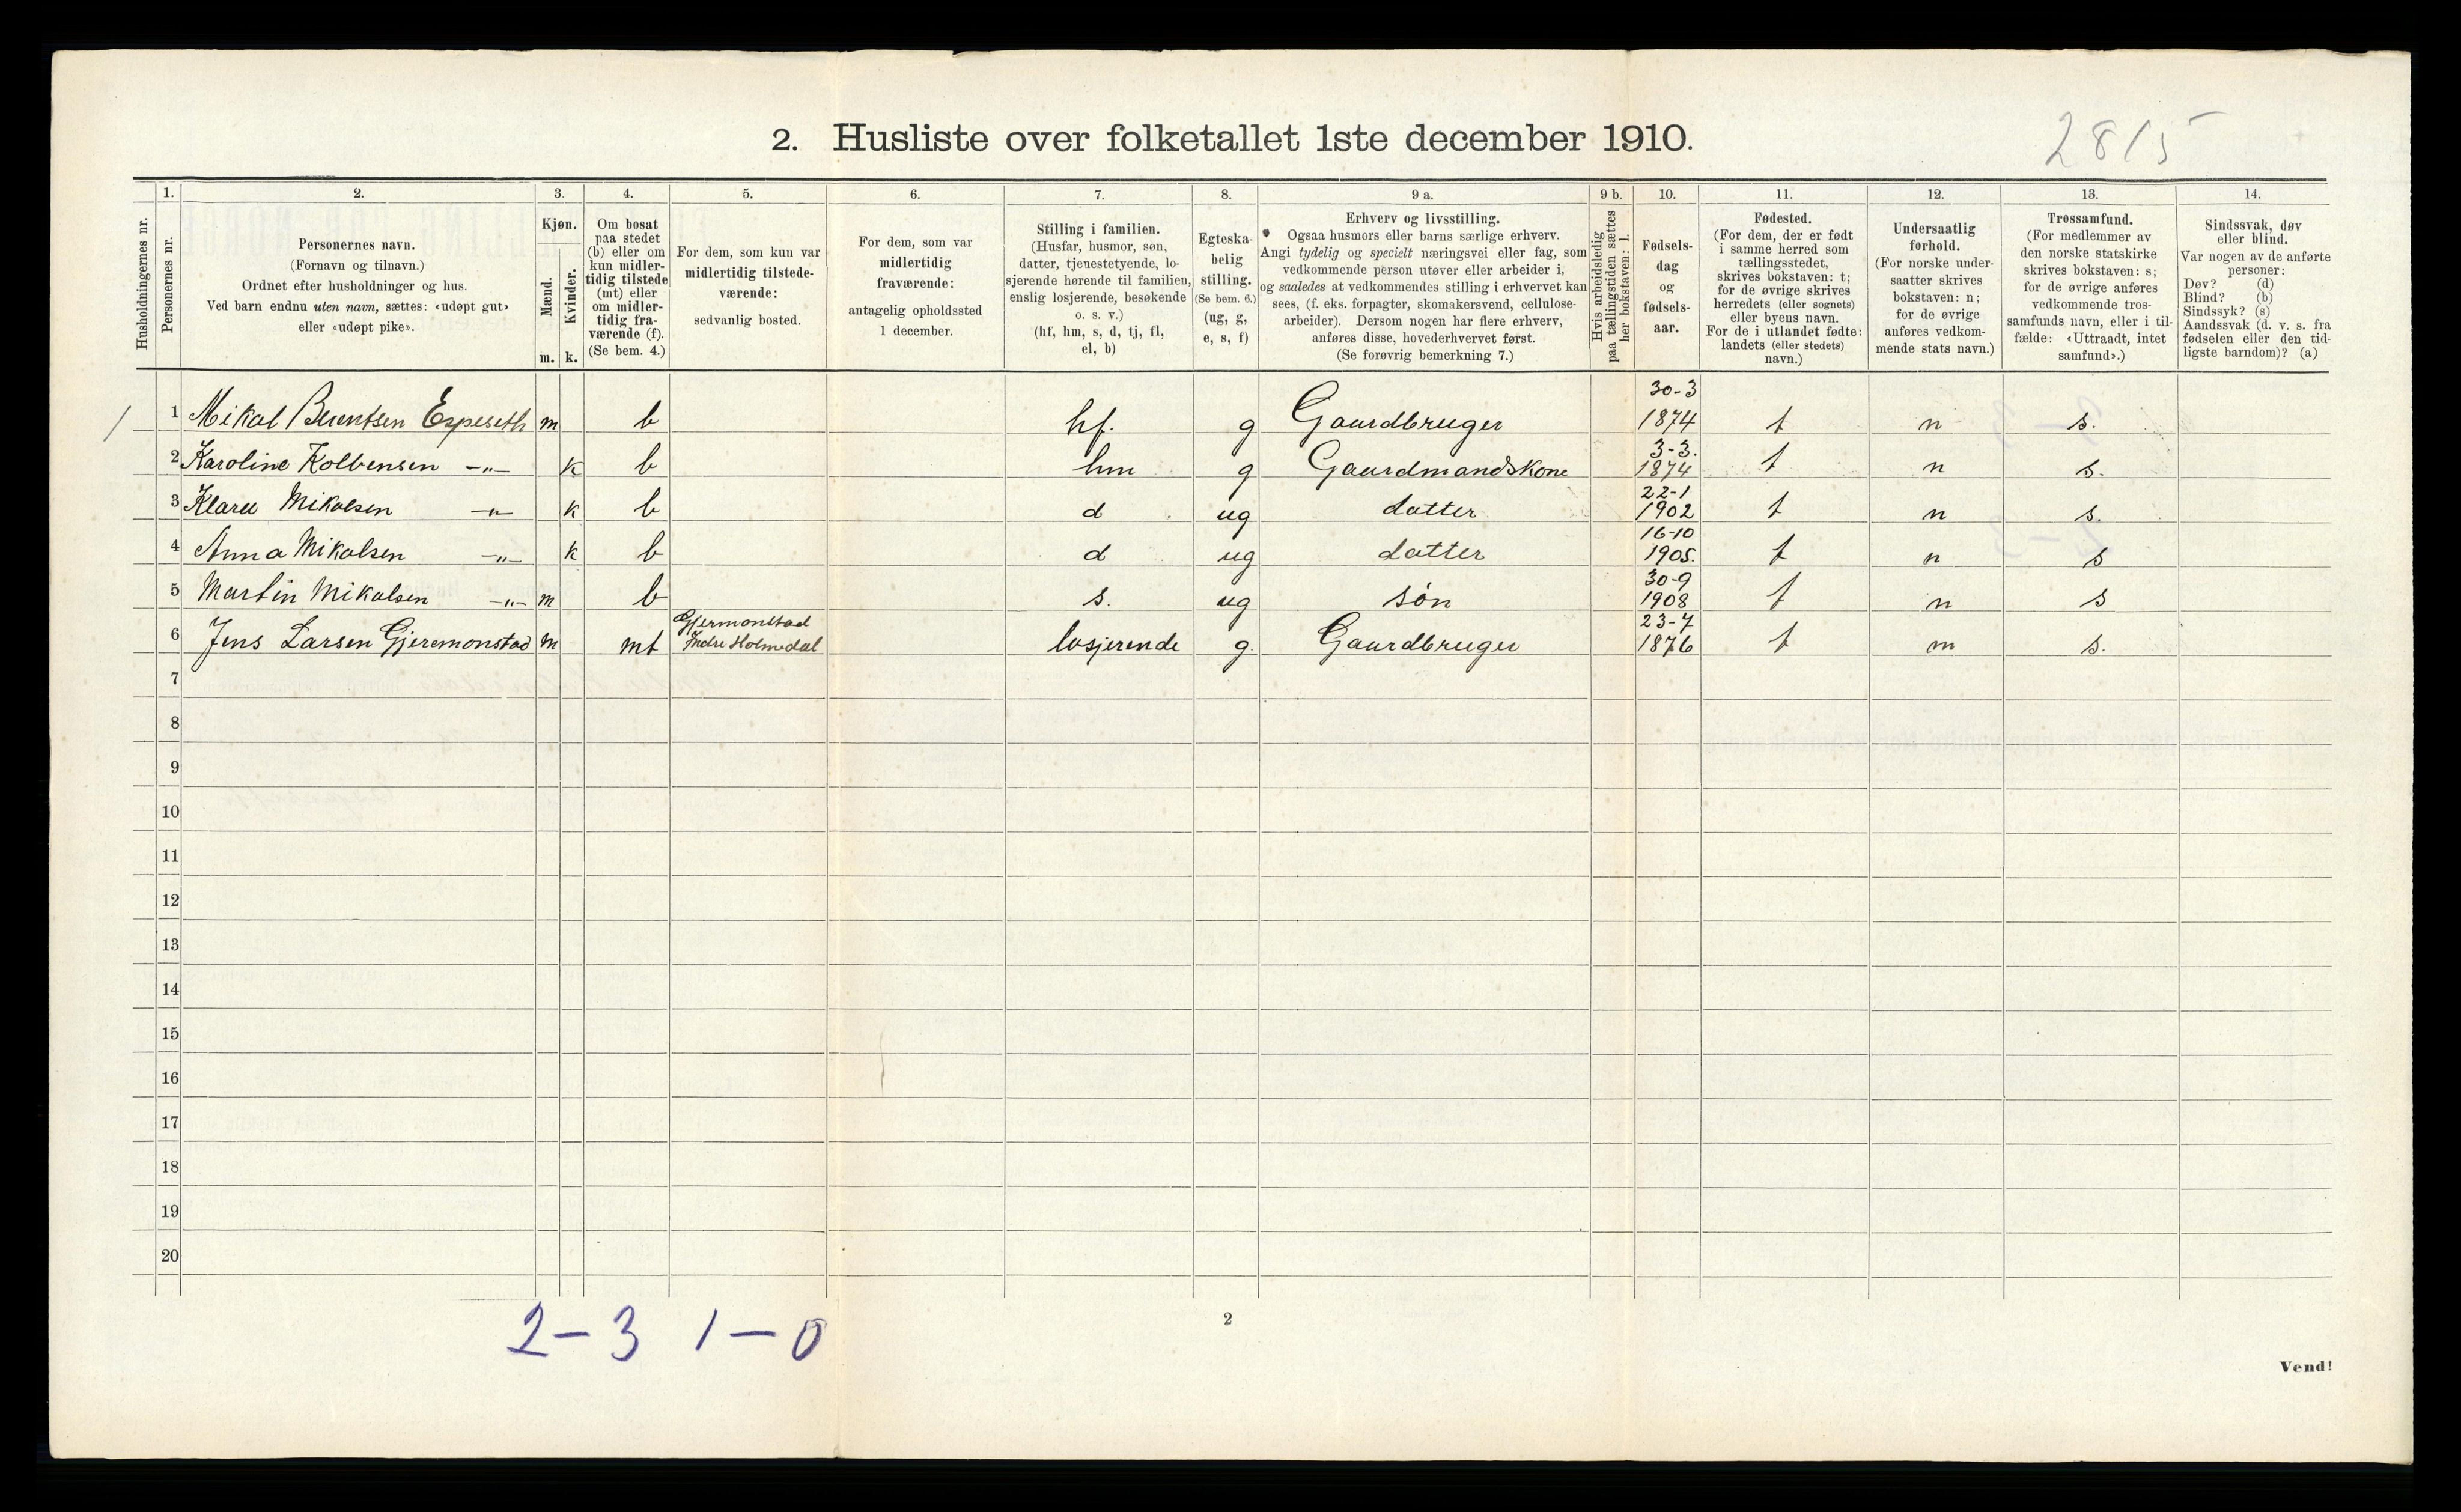 2. Husliste over folketallet 1ste december 1910.
2815
Husholdningernes nr.
1.
Personernes nr.
2.
Personernes navn.
(Fornavn og tilnavn.)
Ordnet efter husholdninger og hus.
Ved barn endnu uten navn, sættes: «udøpt gut»
eller «udøpt pike».
3.
Kjøn.
Mænd.
m.
Kvinder.
k.
4.
Om bosat
paa stedet
(b) eller om
kun midler-
tidig tilstede
(mt) eller
om midler-
tidig fra-
værende (f).
(Se bem. 4.)
5.
For dem, som kun var
midlertidig tilstede-
værende:
sedvanlig bosted.
6.
For dem, som var
midlertidig
fraværende:
antagelig opholdssted
1 december.
7.
Stilling i familien.
(Husfar, husmor, søn,
datter, tjenestetyende, lo-
sjerende hørende til familien,
enslig losjerende, besøkende
o. s. v.)
(hf, hm, s, d, tj, fl,
el, b)
8.
Egteska-
belig
stilling.
(Se bem. 6.)
(ug, g,
e, s, f)
9 a.
Erhverv og livsstilling.
Ogsaa husmors eller barns særlige erhverv.
Angi tydelig og specielt næringsvei eller fag, som
vedkommende person utøver eller arbeider i,
og saaledes at vedkommendes stilling i erhvervet kan
sees, (f. eks. forpagter, skomakersvend, cellulose-
arbeider). Dersom nogen har flere erhverv,
anføres disse, hovederhvervet først.
(Se forøvrig bemerkning 7.)
9 b.
Hvis arbeidsledig
paa tællingstiden sættes
her bokstaven: l.
10.
Fødsels-
dag
og
fødsels-
aar.
11.
Fødested.
(For dem, der er født
i samme herred som
tællingsstedet,
skrives bokstaven: t;
for de øvrige skrives
herredets (eller sognets)
eller byens navn.
For de i utlandet fødte:
landets (eller stedets)
navn.)
12.
Undersaatlig
forhold.
(For norske under-
saatter skrives
bokstaven: n;
for de øvrige
anføres vedkom-
mende stats navn.)
13.
Trossamfund.
(For medlemmer av
den norske statskirke
skrives bokstaven: s;
for de øvrige anføres
vedkommende tros-
samfunds navn, eller i til-
fælde: «Uttraadt, intet
samfund».)
14.
Sindssvak, døv
eller blind.
Var nogen av de anførte
personer:
Døv? (d)
Blind? (b)
Sindssyk? (s)
Aandssvak (d. v. s. fra
fødselen eller den tid-
ligste barndom)? (a)
1 1 Mikal Berentsen Espeseth m b hf. g Gaardbruger 30-3 1874 t n s.
2 Karoline Kolbensen -"- k b hm g Gaardmandskone 3-3. 1874 t n s.
3 Klara Mikalsen -"- k b d ug datter 22-1 1902 t n s.
4 Anna Mikalsen -"- k b d ug datter 16-10 1905. t n s
5 Martin Mikalsen -"- m b s. ug søn 30-9 1908 t n s
6 Jens Larsen Gjeremonstad m mt Gjermonstad Indre Holmedal losjerende g. Gaardbruger 23-7 1876 t n s.
7
8
9
10
11
12
13
14
15
16
17
18
19
20
2-3 1-0
2
Vend!